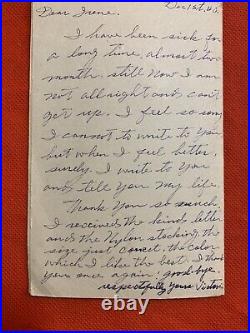 Dec 1st, 46.
Dear Irene.
I have been sick for
a long time, almost two
month. still now I am
not all right and can't
get up. I feel so sorry
I cannot to write to you
but when I feel better,
surely, I write to you
and tell you my life.
Thank you so much,
I received the kind letter
and the Nylon stocking. the
size just correct. the color
which I like the best. I thank
you once again! good-bye.
respectfully yours